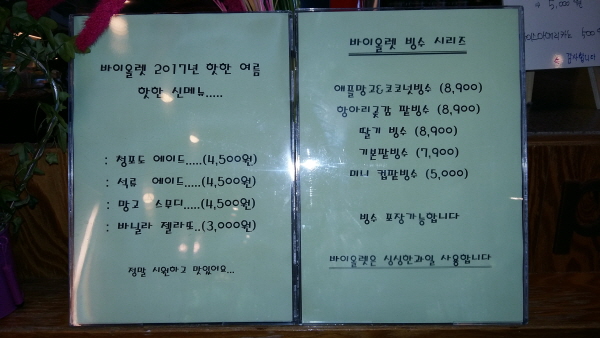 바이올렛 2017년 핫한 여름
핫한 신메뉴.....
: 청포도 에이드.....(4,500원)
: 석류 에이드.....(4,500원)
: 망고 스무디.....(4,500원)
: 바닐라 젤라또..(3,000원)
정말 시원하고 맛있어요...
바이올렛 빙수 시리즈
애플망고&코코넛빙수 (8,900)
항아리곶감 팥빙수 (8,900)
딸기 빙수 (8,900)
기본팥빙수 (7,900)
미니 컵팥빙수 (5,000)
빙수 포장가능합니다
바이올렛은 싱싱한과일 사용합니다
5,000원
500
감사합니다